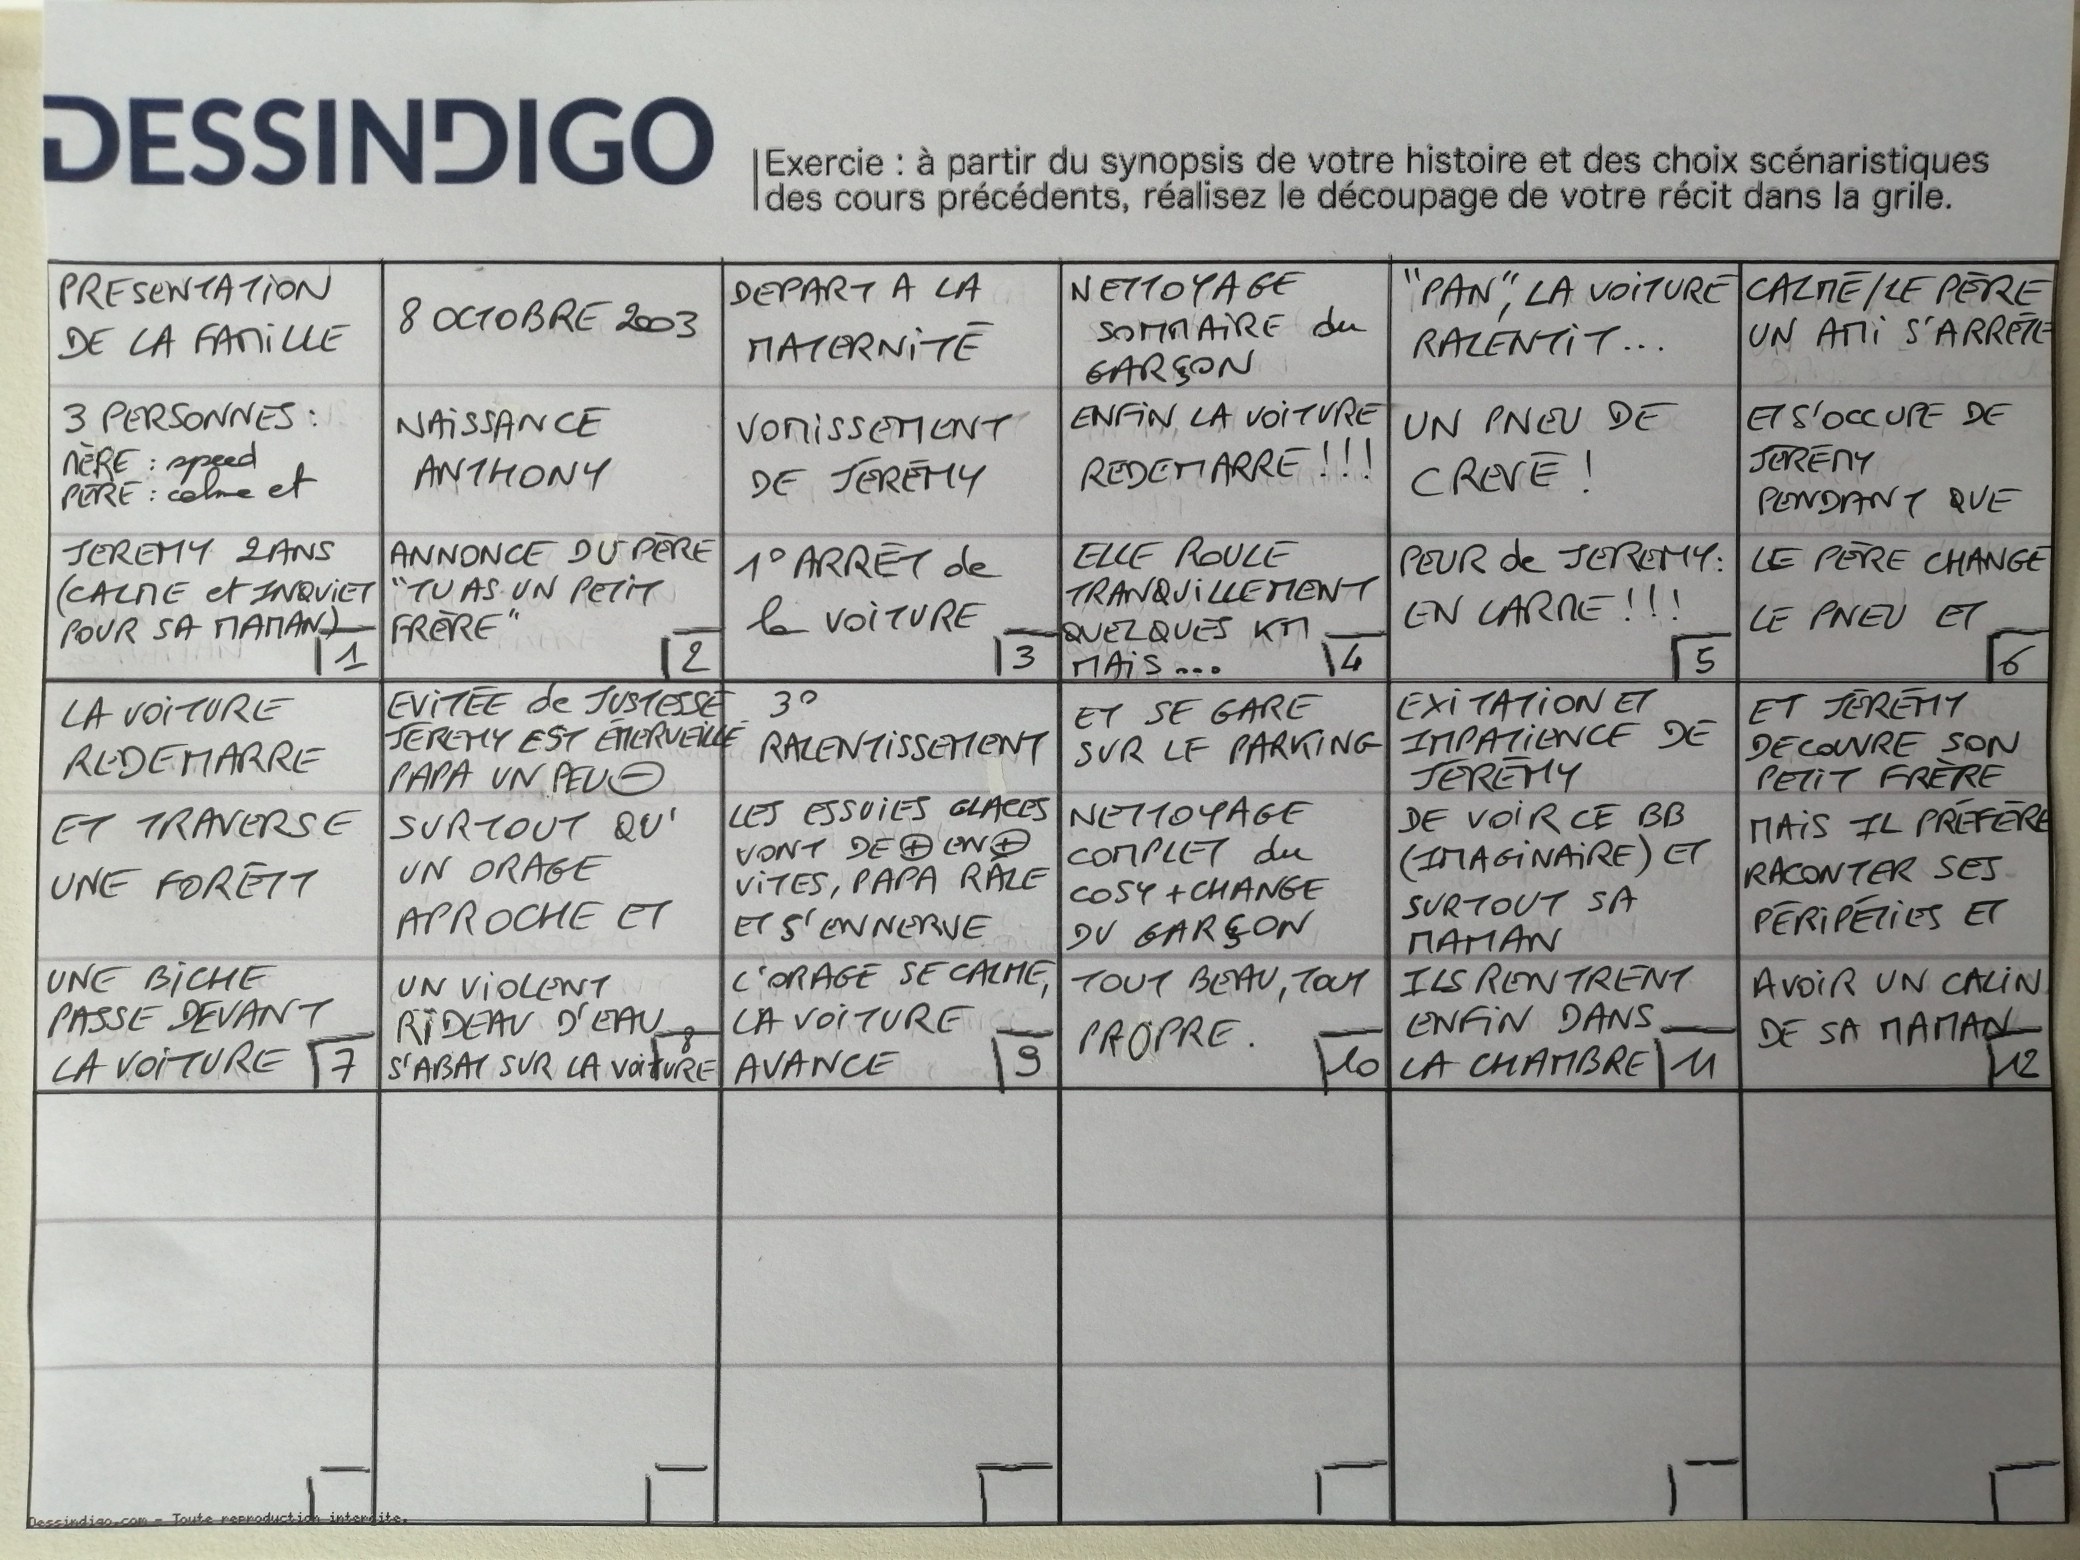 DESSINDIGO
Exercie : à partir du synopsis de votre histoire et des choix scénaristiques
des cours précédents, réalisez le découpage de votre récit dans la grile.
PRESENTATION
DE LA FAMILLE
3 PERSONNES :
MÈRE : speed
PÈRE : calme et
JEREMY 2ANS
(CALME et INQUIET
POUR SA MAMAN)
1
8 OCTOBRE 2003
NAISSANCE
ANTHONY
ANNONCE DU PÈRE
"TU AS UN PETIT
FRÈRE"
2
DEPART A LA
MATERNITÉ
VOMISSEMENT
DE JÉRÉMY
1° ARRÊT de
la VOITURE
3
NETTOYAGE
SOMMAIRE du
GARÇON
ENFIN, LA VOITURE
REDEMARRE !!!
ELLE ROULE
TRANQUILLEMENT
QUELQUES KM
MAIS...
4
"PAN", LA VOITURE
RALENTIT...
UN PNEU DE
CREVÉ !
PEUR de JEREMY:
EN LARME !!!
5
CALMÉ/LE PÈRE
UN AMI S'ARRÊTE
ET S'OCCUPE DE
JÉRÉMY
PENDANT QUE
LE PÈRE CHANGE
LE PNEU ET
6
LA VOITURE
REDEMARRE
ET TRAVERSE
UNE FORÊTT
UNE BICHE
PASSE DEVANT
LA VOITURE
7
EVITÉE de JUSTESSE
JEREMY EST ÉMERVEILLÉ
PAPA UN PEU ⊖
SURTOUT QU'
UN ORAGE
APROCHE ET
UN VIOLENT
RIDEAU D'EAU
S'ABAT SUR LA VOITURE
8
3°
RALENTISSEMENT
LES ESSUIES GLACES
VONT DE ⊕ EN ⊕
VITES, PAPA RÂLE
ET S'ENNERVE
L'ORAGE SE CALME,
LA VOITURE
AVANCE
9
ET SE GARE
SUR LE PARKING
NETTOYAGE
COMPLET du
COSY + CHANGE
DU GARÇON
TOUT BEAU, TOUT
PROPRE.
10
EXITATION ET
IMPATIENCE DE
JÉRÉMY
DE VOIR CE BB
(IMAGINAIRE) ET
SURTOUT SA
MAMAN
ILS RENTRENT
ENFIN DANS
LA CHAMBRE
11
ET JÉRÉMY
DECOUVRE SON
PETIT FRÈRE
MAIS IL PRÉFÉRE
RACONTER SES
PÉRIPÉTIES ET
AVOIR UN CALIN
DE SA MAMAN
12
Dessindigo.com - Toute reproduction interdite.